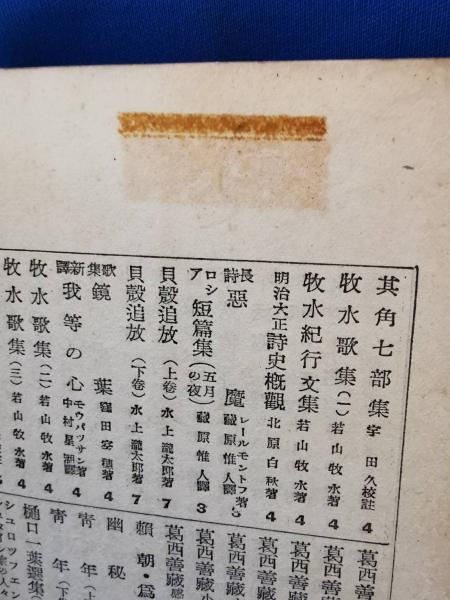 其角七部集 宇田久校註 4
牧水歌集(一) 若山牧水著 4
牧水紀行文集 若山牧水著 4
明治大正詩史概觀 北原白秋著 4
長詩 惡魔 レールモントフ著 藏原惟人譯 3
ロシア短篇集(五月の夜) 藏原惟人譯 3
貝殼追放(上卷) 水上瀧太郎著 7
貝殼追放(下卷) 水上瀧太郎著 7
歌集 鏡葉 窪田空穗著 4
新譯 我等の心 モウパッサン著 中村星湖譯 4
牧水歌集(二) 若山牧水著 4
牧水歌集(三) 若山牧水著 4
葛西善藏
葛西善藏
葛西善藏
葛西善藏
葛西善藏小
葛西善藏感
賴朝・爲
幽秘
靑年(上
靑年(下
樋口一葉選集(